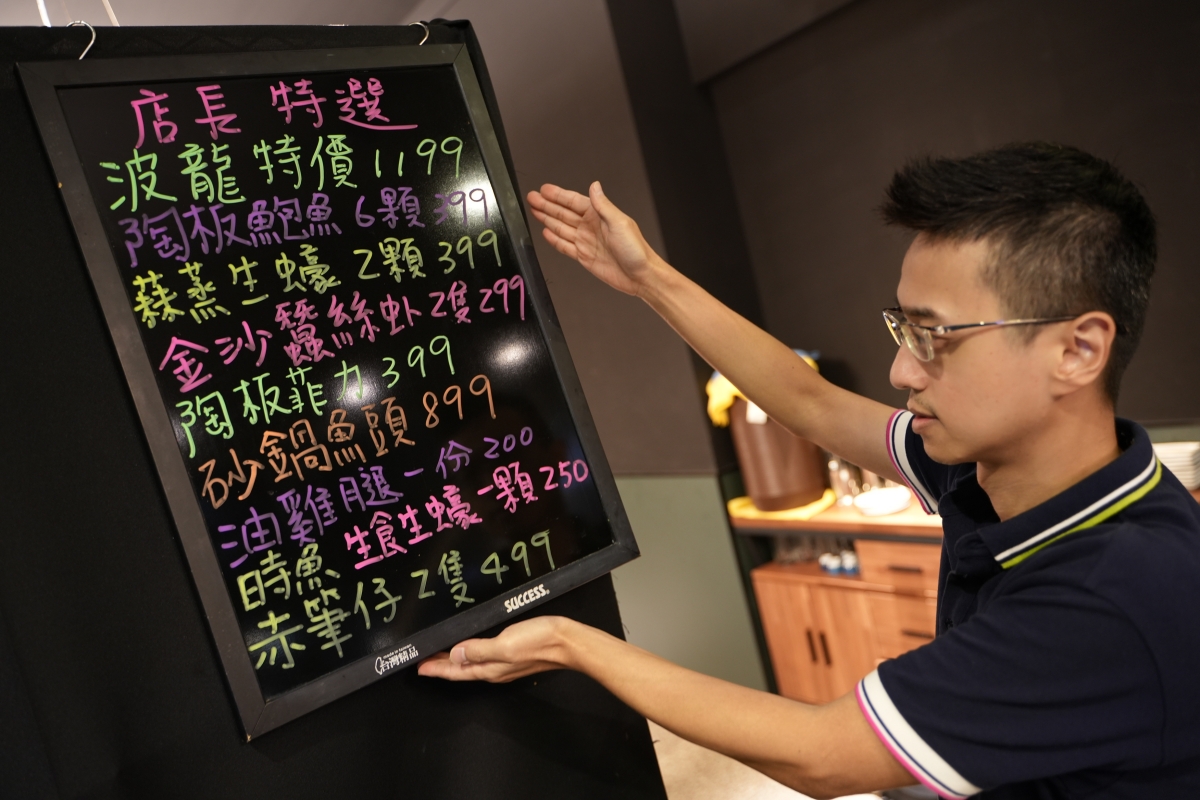 店長 特選
波龍 特價 1199
陶板鮑魚 6顆 399
蒜蒸生蠔 2顆 399
金沙蠶絲蚪 2隻 299
陶板菲力 399
砂鍋魚頭 899
油雞腿一份 200
生食生蠔一顆250
時魚
赤筆仔 2隻 499
SUCCESS.
台灣精品